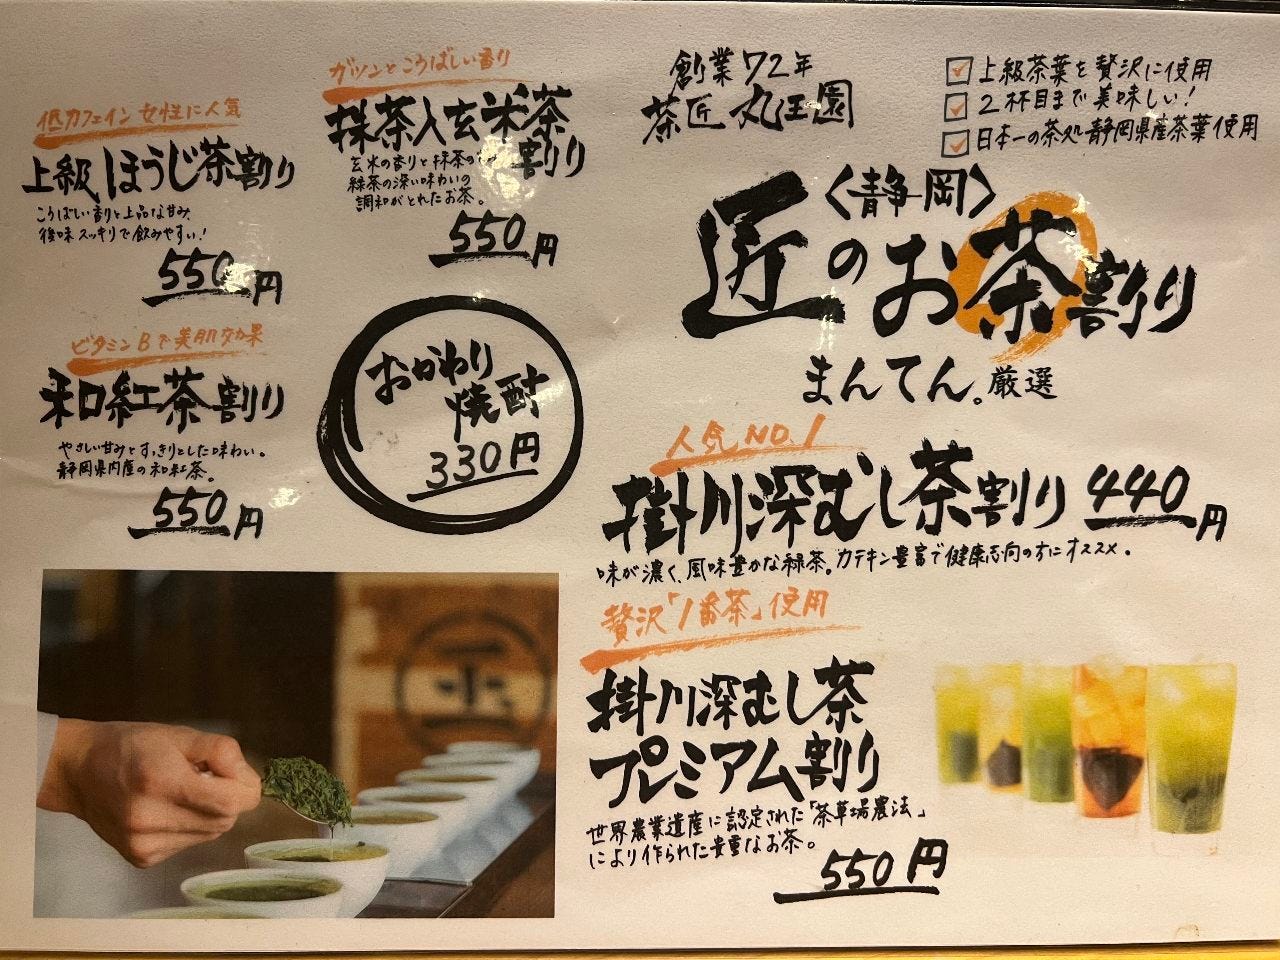 創業72年
茶匠 丸玉園
上級茶葉を贅沢に使用
2杯目まで美味しい!
日本一の茶処静岡県産茶葉使用
〈静岡〉
匠のお茶割り
まんてん。厳選
人気NO.1
掛川深むし茶割り 440円
味が濃く、風味豊かな緑茶。カテキン豊富で健康志向の方にオススメ。
贅沢「1番茶」使用
掛川深むし茶
プレミアム割り
世界農業遺産に認定された「茶草場農法」
により作られた貴重なお茶。
550円
ガツンとこうばしい香り
抹茶入玄米茶
割り
玄米の香りと抹茶の
緑茶の深い味わいの
調和がとれたお茶。
550円
低カフェイン 女性に人気
上級ほうじ茶割り
こうばしい香りと上品な甘み、
後味スッキリで飲みやすい!
550円
ビタミンBで美肌効果
和紅茶割り
やさしい甘みとすっきりとした味わい。
静岡県内産の和紅茶。
550円
おかわり
焼酎
330円